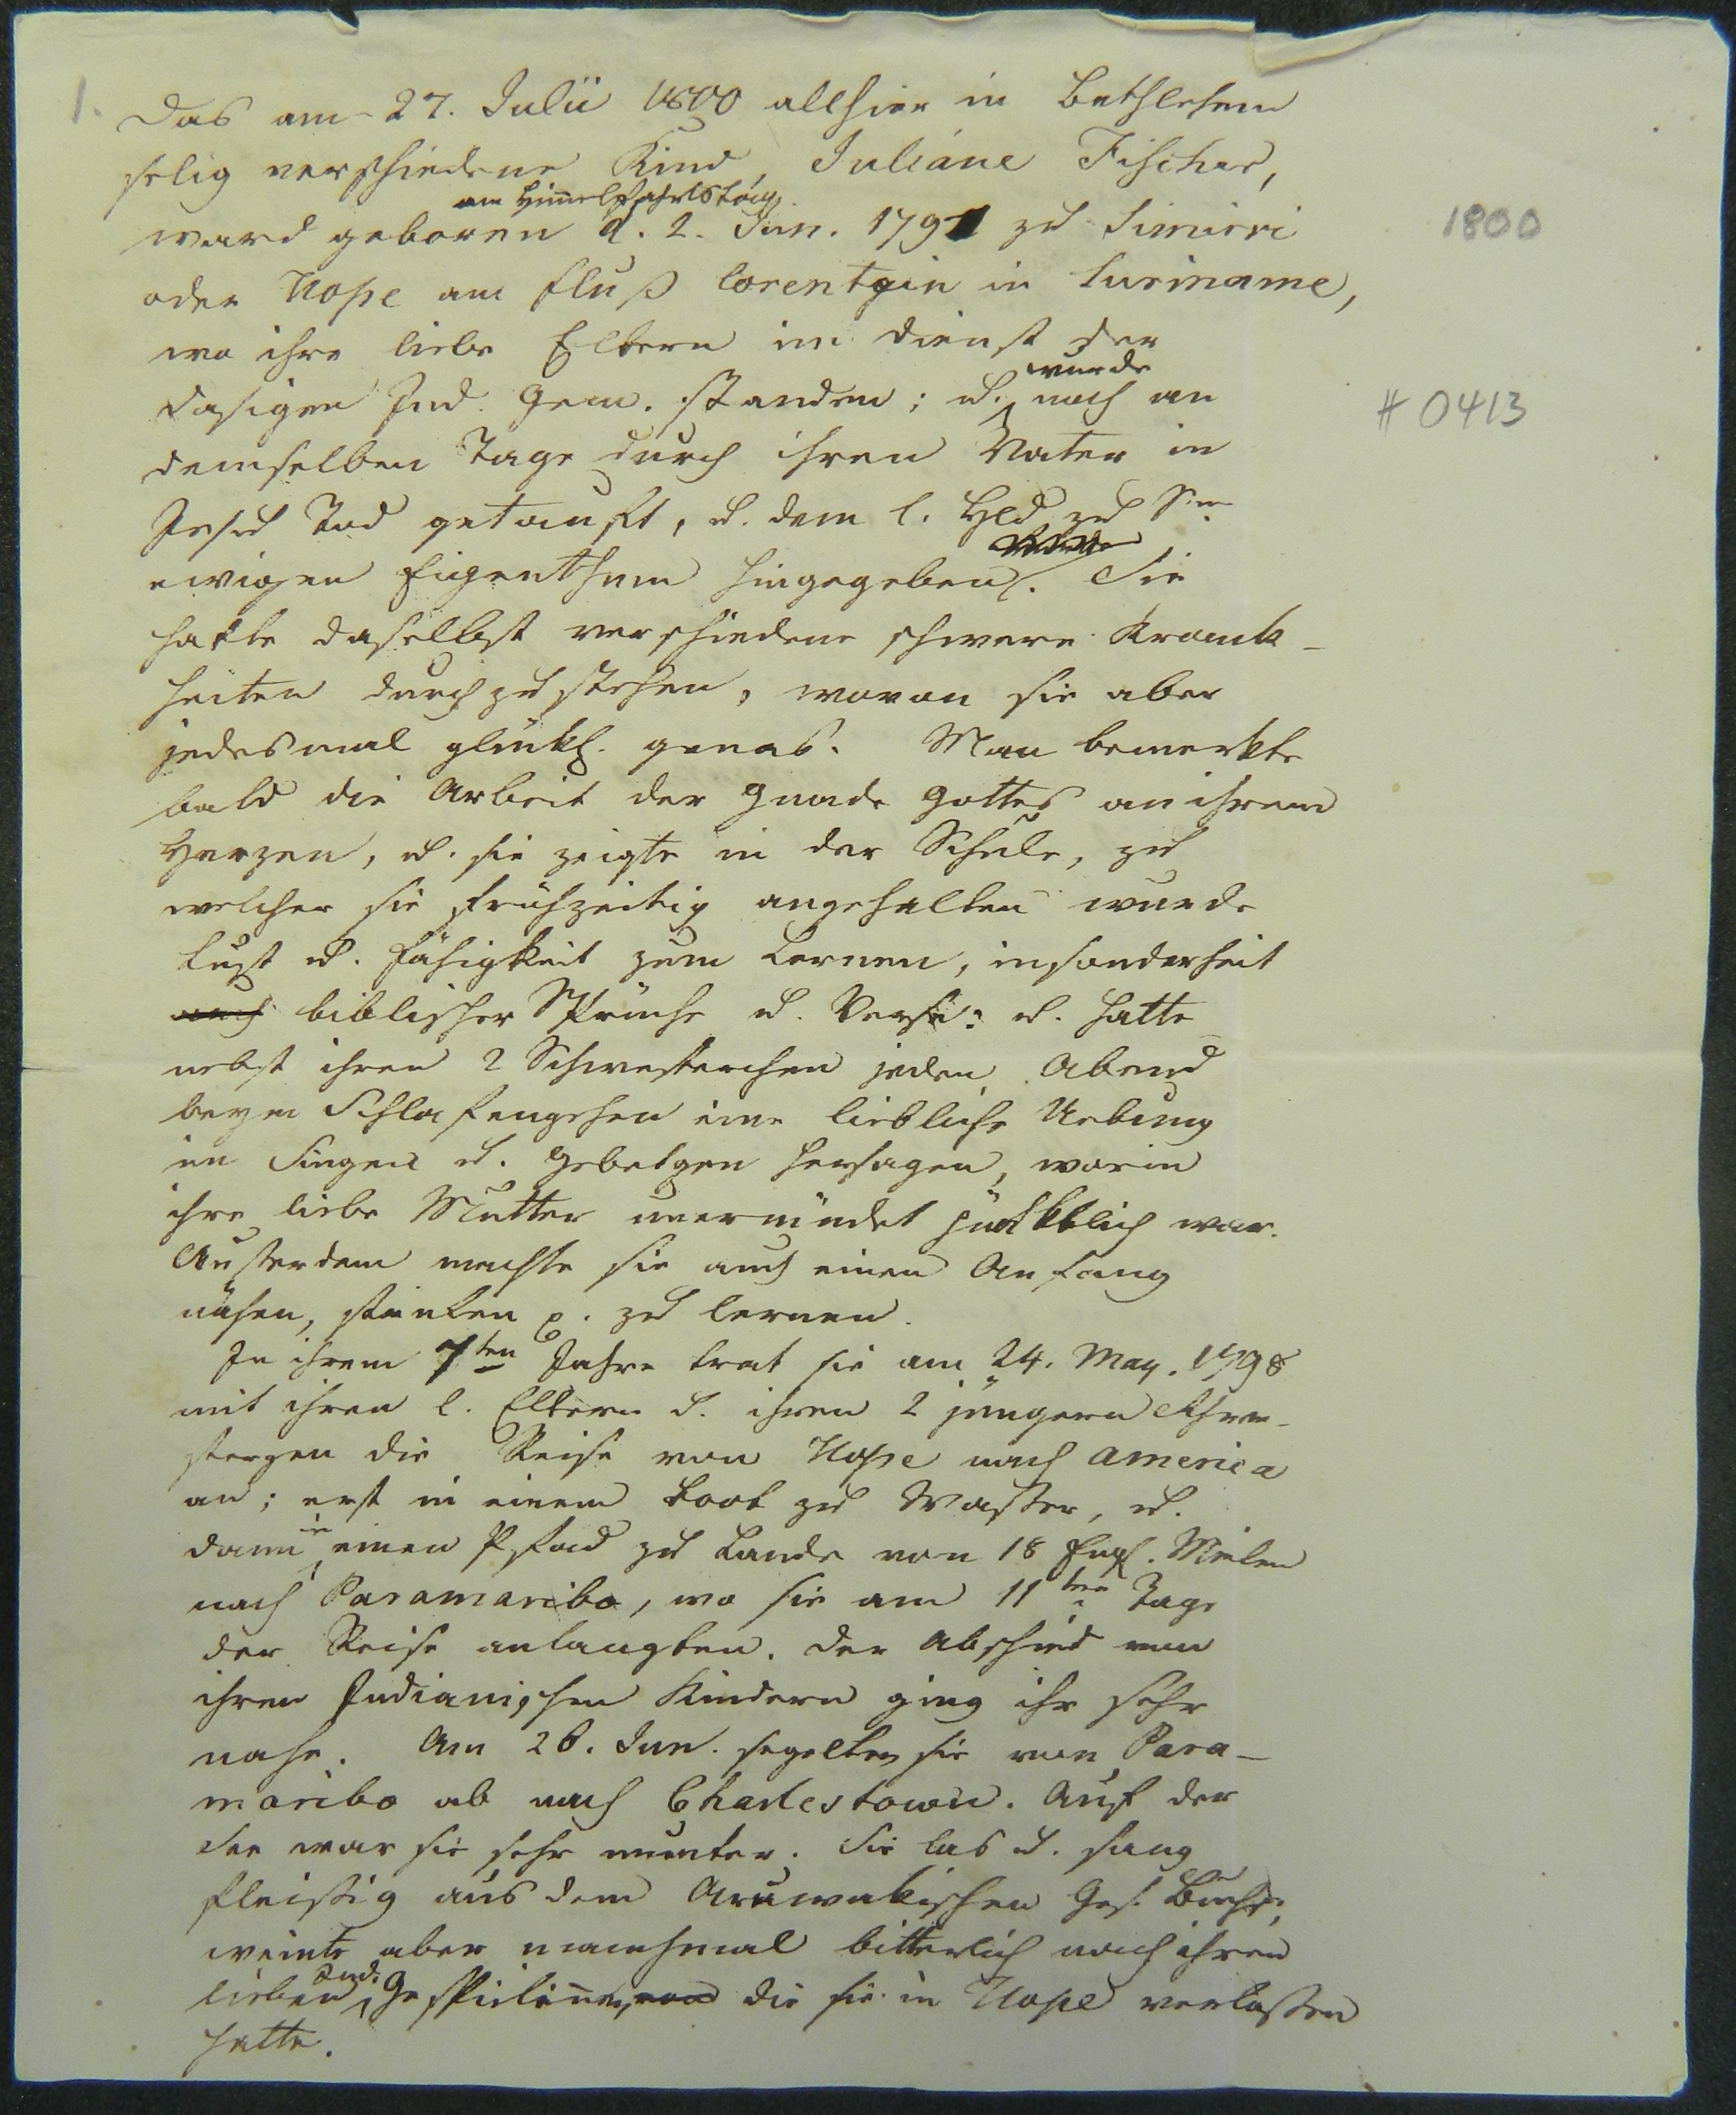 1.
Das am 27. Julii 1800 allhier in Bethlehem
selig verschiedene Kind, Juliane Fischer,
am Him̄elfahrtstag
ward geboren d. 2. Jun. 1791 zu Simirri
oder Hope am Fluß Corentyn in Suriname,
1800
wo ihre liebe Eltern im Dienst der
wurde
dasigen Ind. Gem. standen; u. noch an
# 0413
demselben Tage durch ihren Vater in
Jesu Tod getauft, u. dem l. Hld zu Sm
ewigen Eigenthum hingegeben. Sie
hatte daselbst verschiedene schwere Krank-
heiten durchzustehen, wovon sie aber
jedesmal glückl. genas. Man bemerkte
bald die Arbeit der Gnade Gottes an ihrem
Herzen, u. sie zeigte in der Schule, zu
welcher sie frühzeitig angehalten wurde
Lust u. Fähigkeit zum Lernen, insonderheit
auch biblischer Sprüche u. Verse: u. hatte
nebst ihren 2 Schwesterchen jeden Abend
beym Schlafengehen eine liebliche Uebung
im Singen u. Gebetgen hersagen, worin
ihre liebe Mutter unermüdet war.
Ausserdem machte sie auch einen Anfang
nähen, p. zu lernen.
In ihrem 7ten Jahre trat sie am 24. May. 1798
mit ihren l. Eltern u. ihren 2 jüngern Schwe-
stergen die Reise von Hope nach America
an; erst in einem Boot zu Wasser, u.
in
dann einen Pfad zu Lande von 18 Engl. Meilen
nach Paramaribo, wo sie am 11ten Tage
der Reise anlangten. Der Abschied von
ihren Indianischen Kindern ging ihr sehr
nahe. Am 26. Jun. segelten sie von Para-
maribo ab nach Charlestown. Auf der
See war sie sehr munter. Sie las u. sang
fleissig aus dem Aruwakischen Ges. Buche,
weinte aber manchmal bitterlich nach ihren
Ind.
lieben Gespielin̄en, die sie in Hope verlassen
hatte.